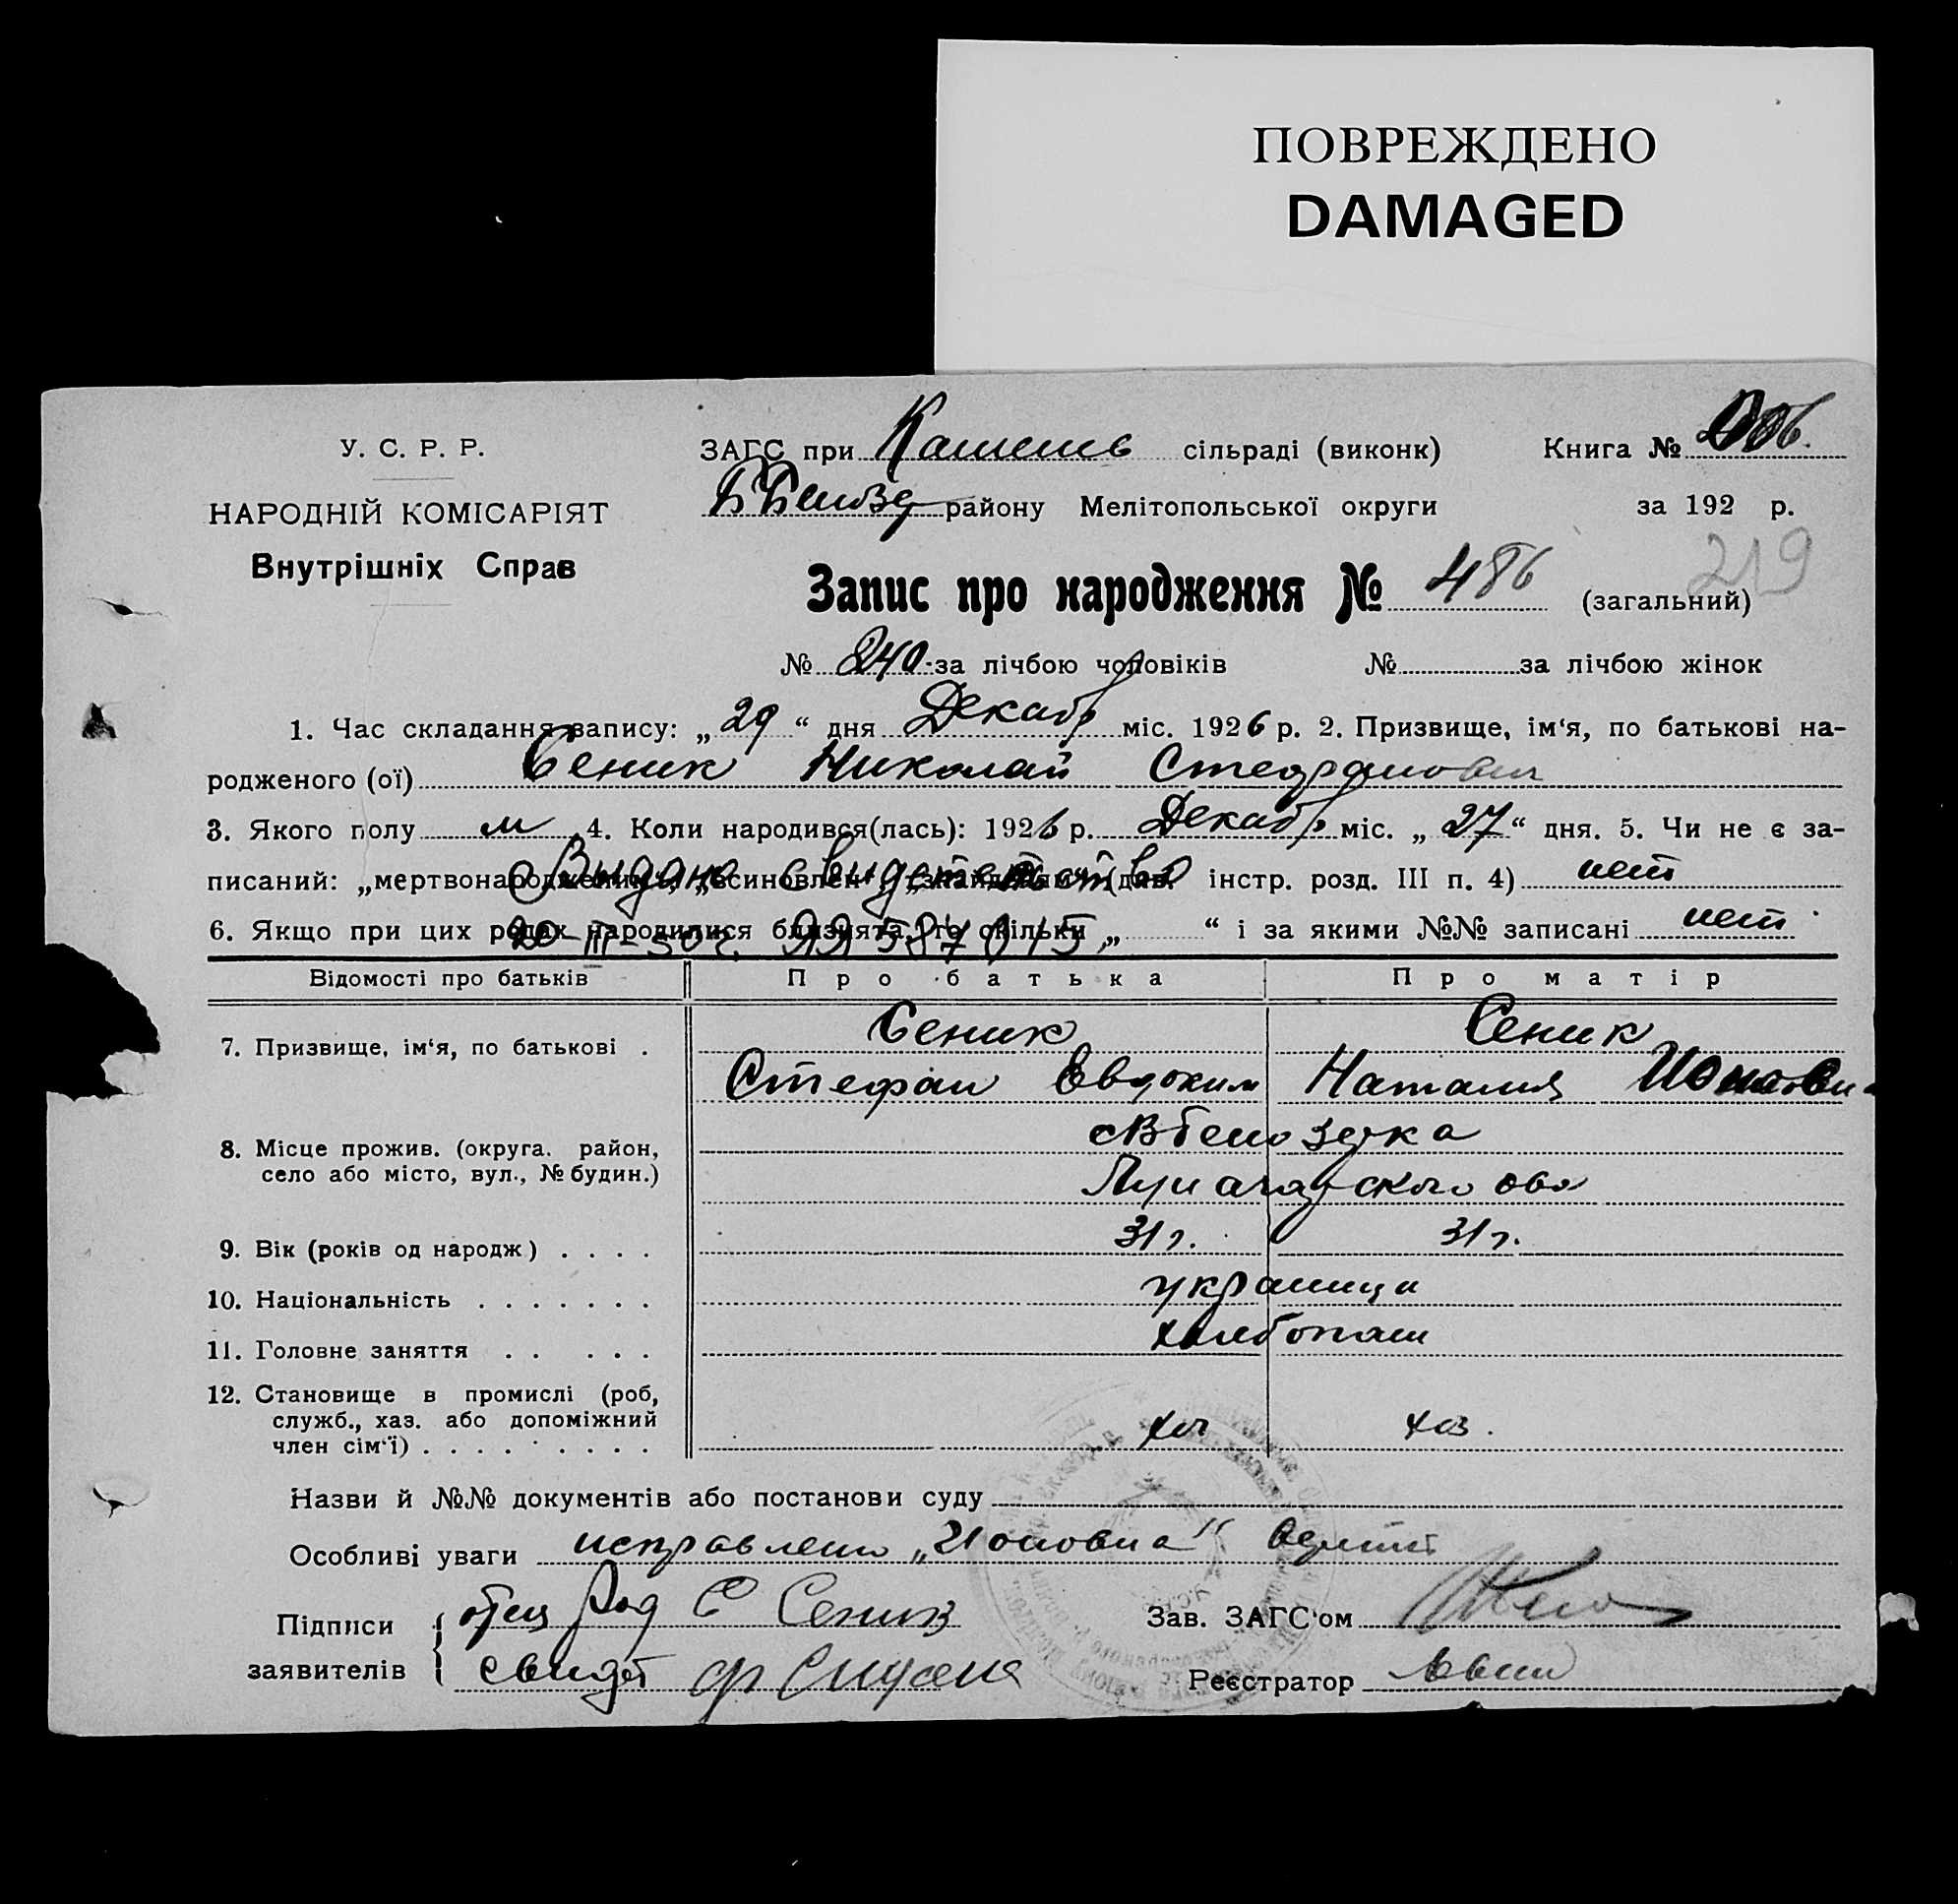 ПОВРЕЖДЕНО
DAMAGED
У. С. Р. Р.
НАРОДНІЙ КОМІСАРІЯТ
Внутрішніх Справ
ЗАГС при сільраді (виконк) Книга №
району Мелітопольської округи за 192 р.
219
Запис про народження № 486 (загальний)
№ 240 за лічбою чоловіків № за лічбою жінок
1. Час складання запису: „29“ дня Декабр міс. 1926 р. 2. Призвище, ім‘я, по батькові на-
родженого (ої) Сеник Николай Стефанович
3. Якого полу м 4. Коли народився(лась): 1926 р. Декабр міс. „27“ дня. 5. Чи не є за-
писаний: „мертвонароджений“, „всиновлен“, „знайдений“ (див. інстр. розд. III п. 4) нет
Выдано свидетельство
6. Якщо при цих родах народилися близнята, то скільки „ “ і за якими №№ записані нет
20-III-50 г.
Відомості про батьків Про батька Про матір
7. Призвище, ім‘я, по батькові . Сеник Сеник
Стефан Евдоким Наталия
8. Місце прожив. (округа. район,
село або місто, вул., № будин.)
9. Вік (років од народж) . . . . 31 г. 31 г.
10. Національність . . . . . . . украинци
11. Головне заняття . . . . . хлебопаш
12. Становище в промислі (роб,
служб., хаз. або допоміжний
член сім‘ї) . . . . . . . . . хоз хоз.
Назви й №№ документів або постанови суду
Особливі уваги исправлено „Ионовна“
Підписи отец С Сеник Зав. ЗАГС‘ом
заявителів свидет Реєстратор